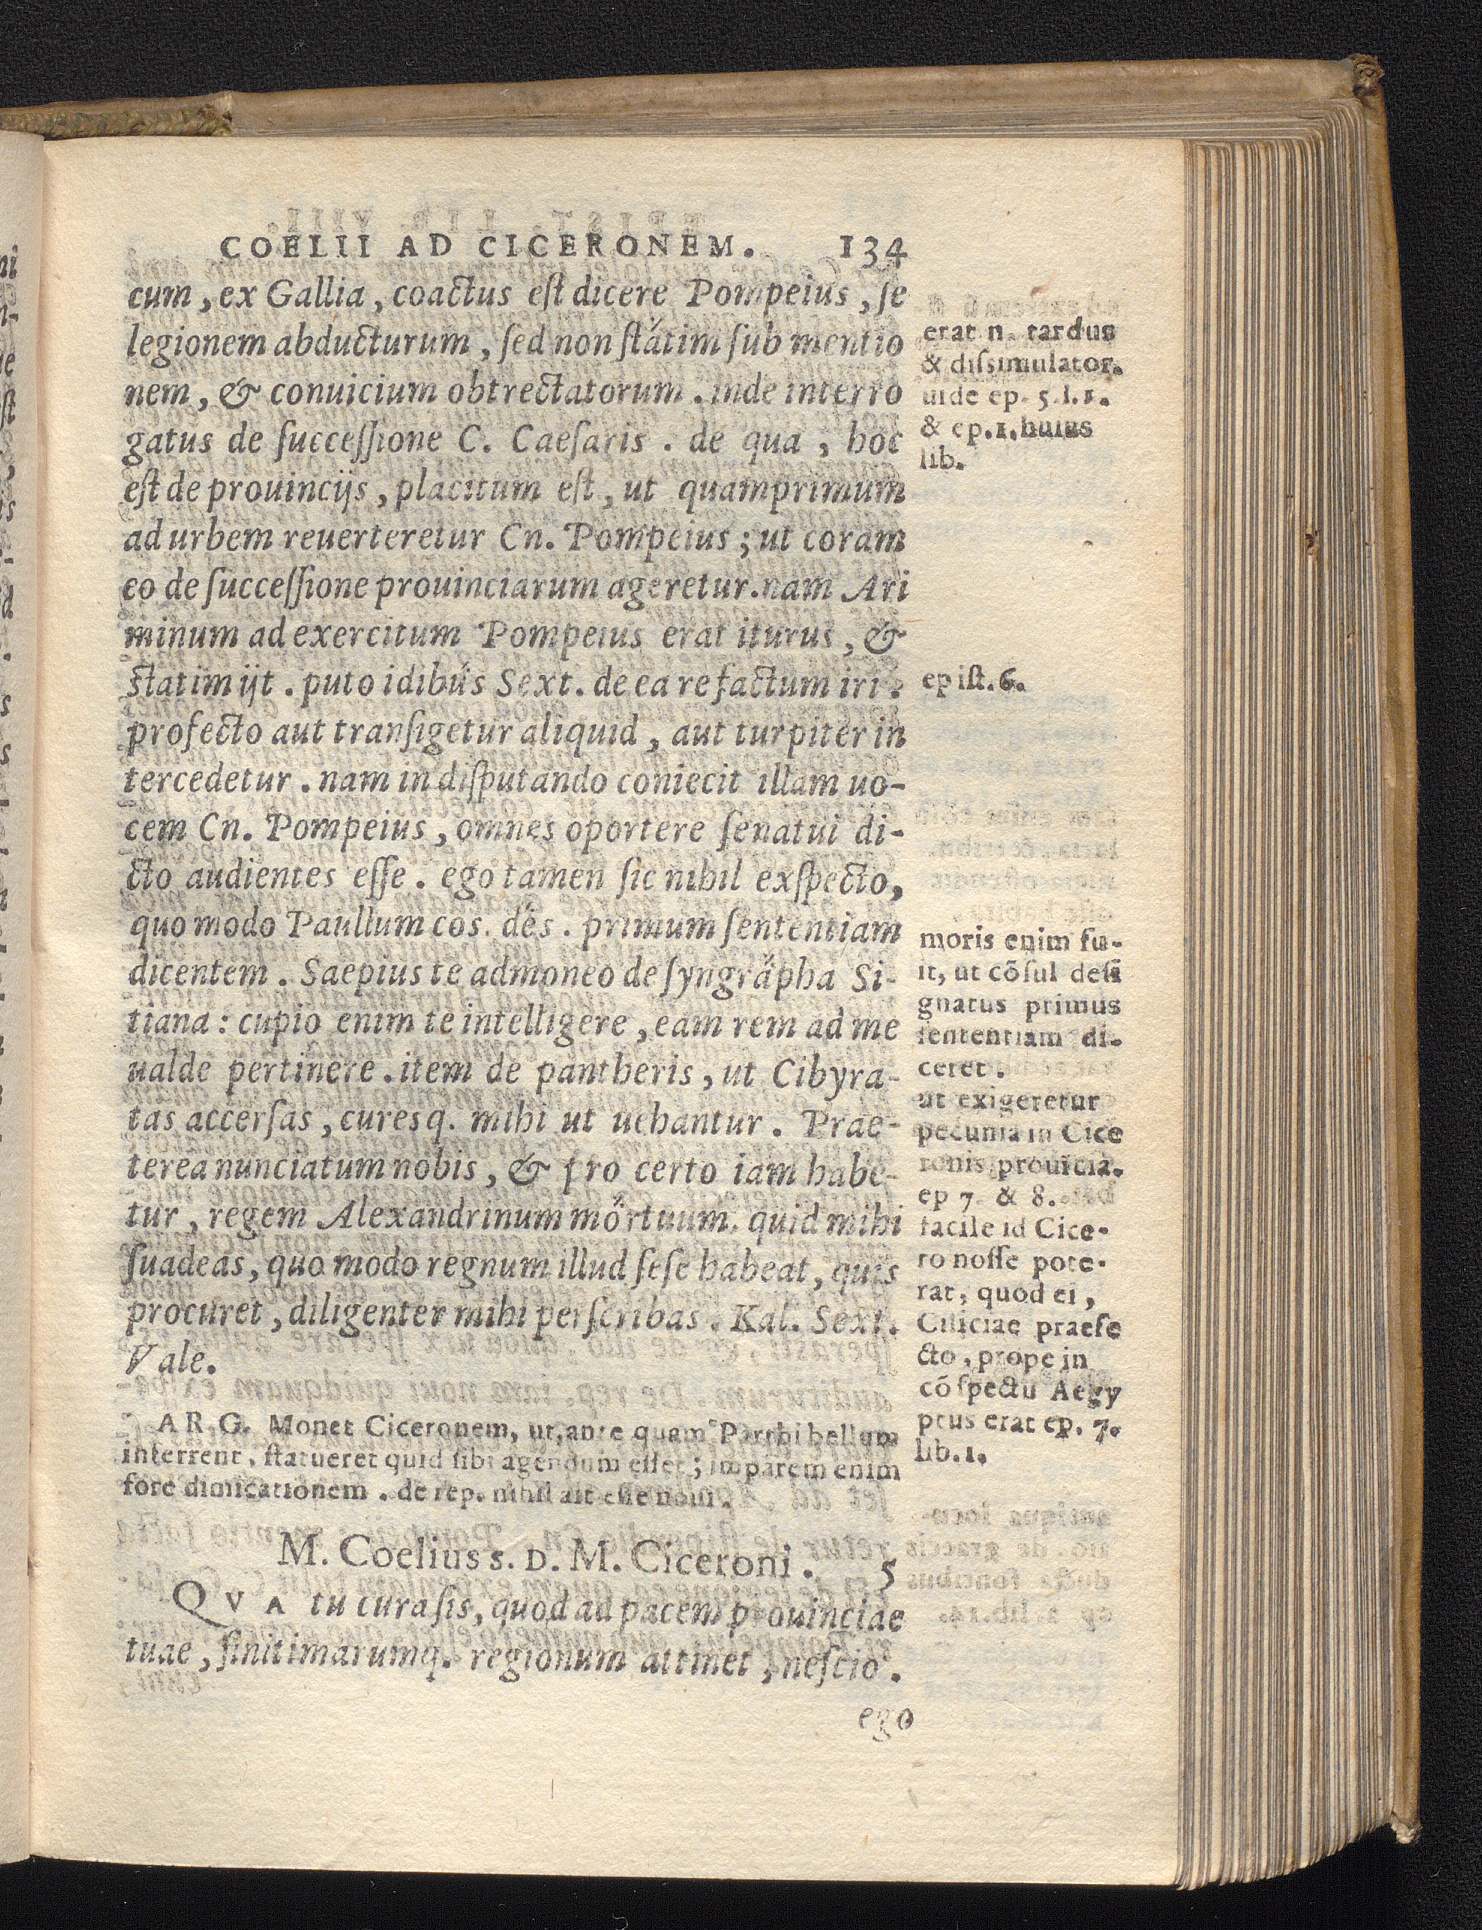 COELII AD CICERONEM. 134
cum, ex Gallia, coactus est dicere Pompeius, se
legionem abducturum, sed non statim sub mentio
nem, & conuicium obtrectatorum. inde interro
gatus de successione C. Caesaris. de qua, hoc
est de prouincijs, placitum est, ut quamprimum
ad urbem reuerteretur Cn. Pompeius; ut coram
eo de successione prouinciarum ageretur. nam Ari
minum ad exercitum Pompeius erat iturus, &
statim ijt. puto idibus Sext. de ea re factum iri.
profecto aut transigetur aliquid, aut turpiter in
tercedetur. nam in disputando coniecit illam uo-
cem Cn. Pompeius, omnes oportere senatui di-
cto audientes esse. ego tamen sic nihil exspecto,
quo modo Paullum cos. des. primum sententiam
dicentem. Saepius te admoneo de syngrapha Si-
tiana: cupio enim te intelligere, eam rem ad me
ualde pertinere. item de pantheris, ut Cibyra-
tas accersas, curesq. mihi ut uehantur. Prae-
terea nunciatum nobis, & pro certo iam habe-
tur, regem Alexandrinum mortuum. quid mihi
suadeas, quo modo regnum illud sese habeat, quis
procuret, diligenter mihi perscribas. Kal. Sext.
Vale.
ARG. Monet Ciceronem, ut, ante quam Parthi bellum
inferrent, statueret quid sibi agendum esset; imparem enim
fore dimicationem. de rep. nihil ait esse noui.
M. Coelius S. D. M. Ciceroni. 5
QVA tu cura sis, quod ad pacem prouinciae
tuae, finitimarumq. regionum attinet, nescio.
ego
erat n. tardus
& dissimulator.
uide ep. 5. l. 1.
& ep. 1. huius
lib.
epist. 6.
moris enim fu-
it, ut cõsul desi
gnatus primus
sententiam di-
ceret.
ut exigeretur
pecunia in Cice
ronis prouicia.
ep 7. & 8.
facile id Cice-
ro nosse pote-
rat, quod ei,
Ciliciae praefe
cto, prope in
cõspectu Aegy
ptus erat ep. 7.
lib. 1.